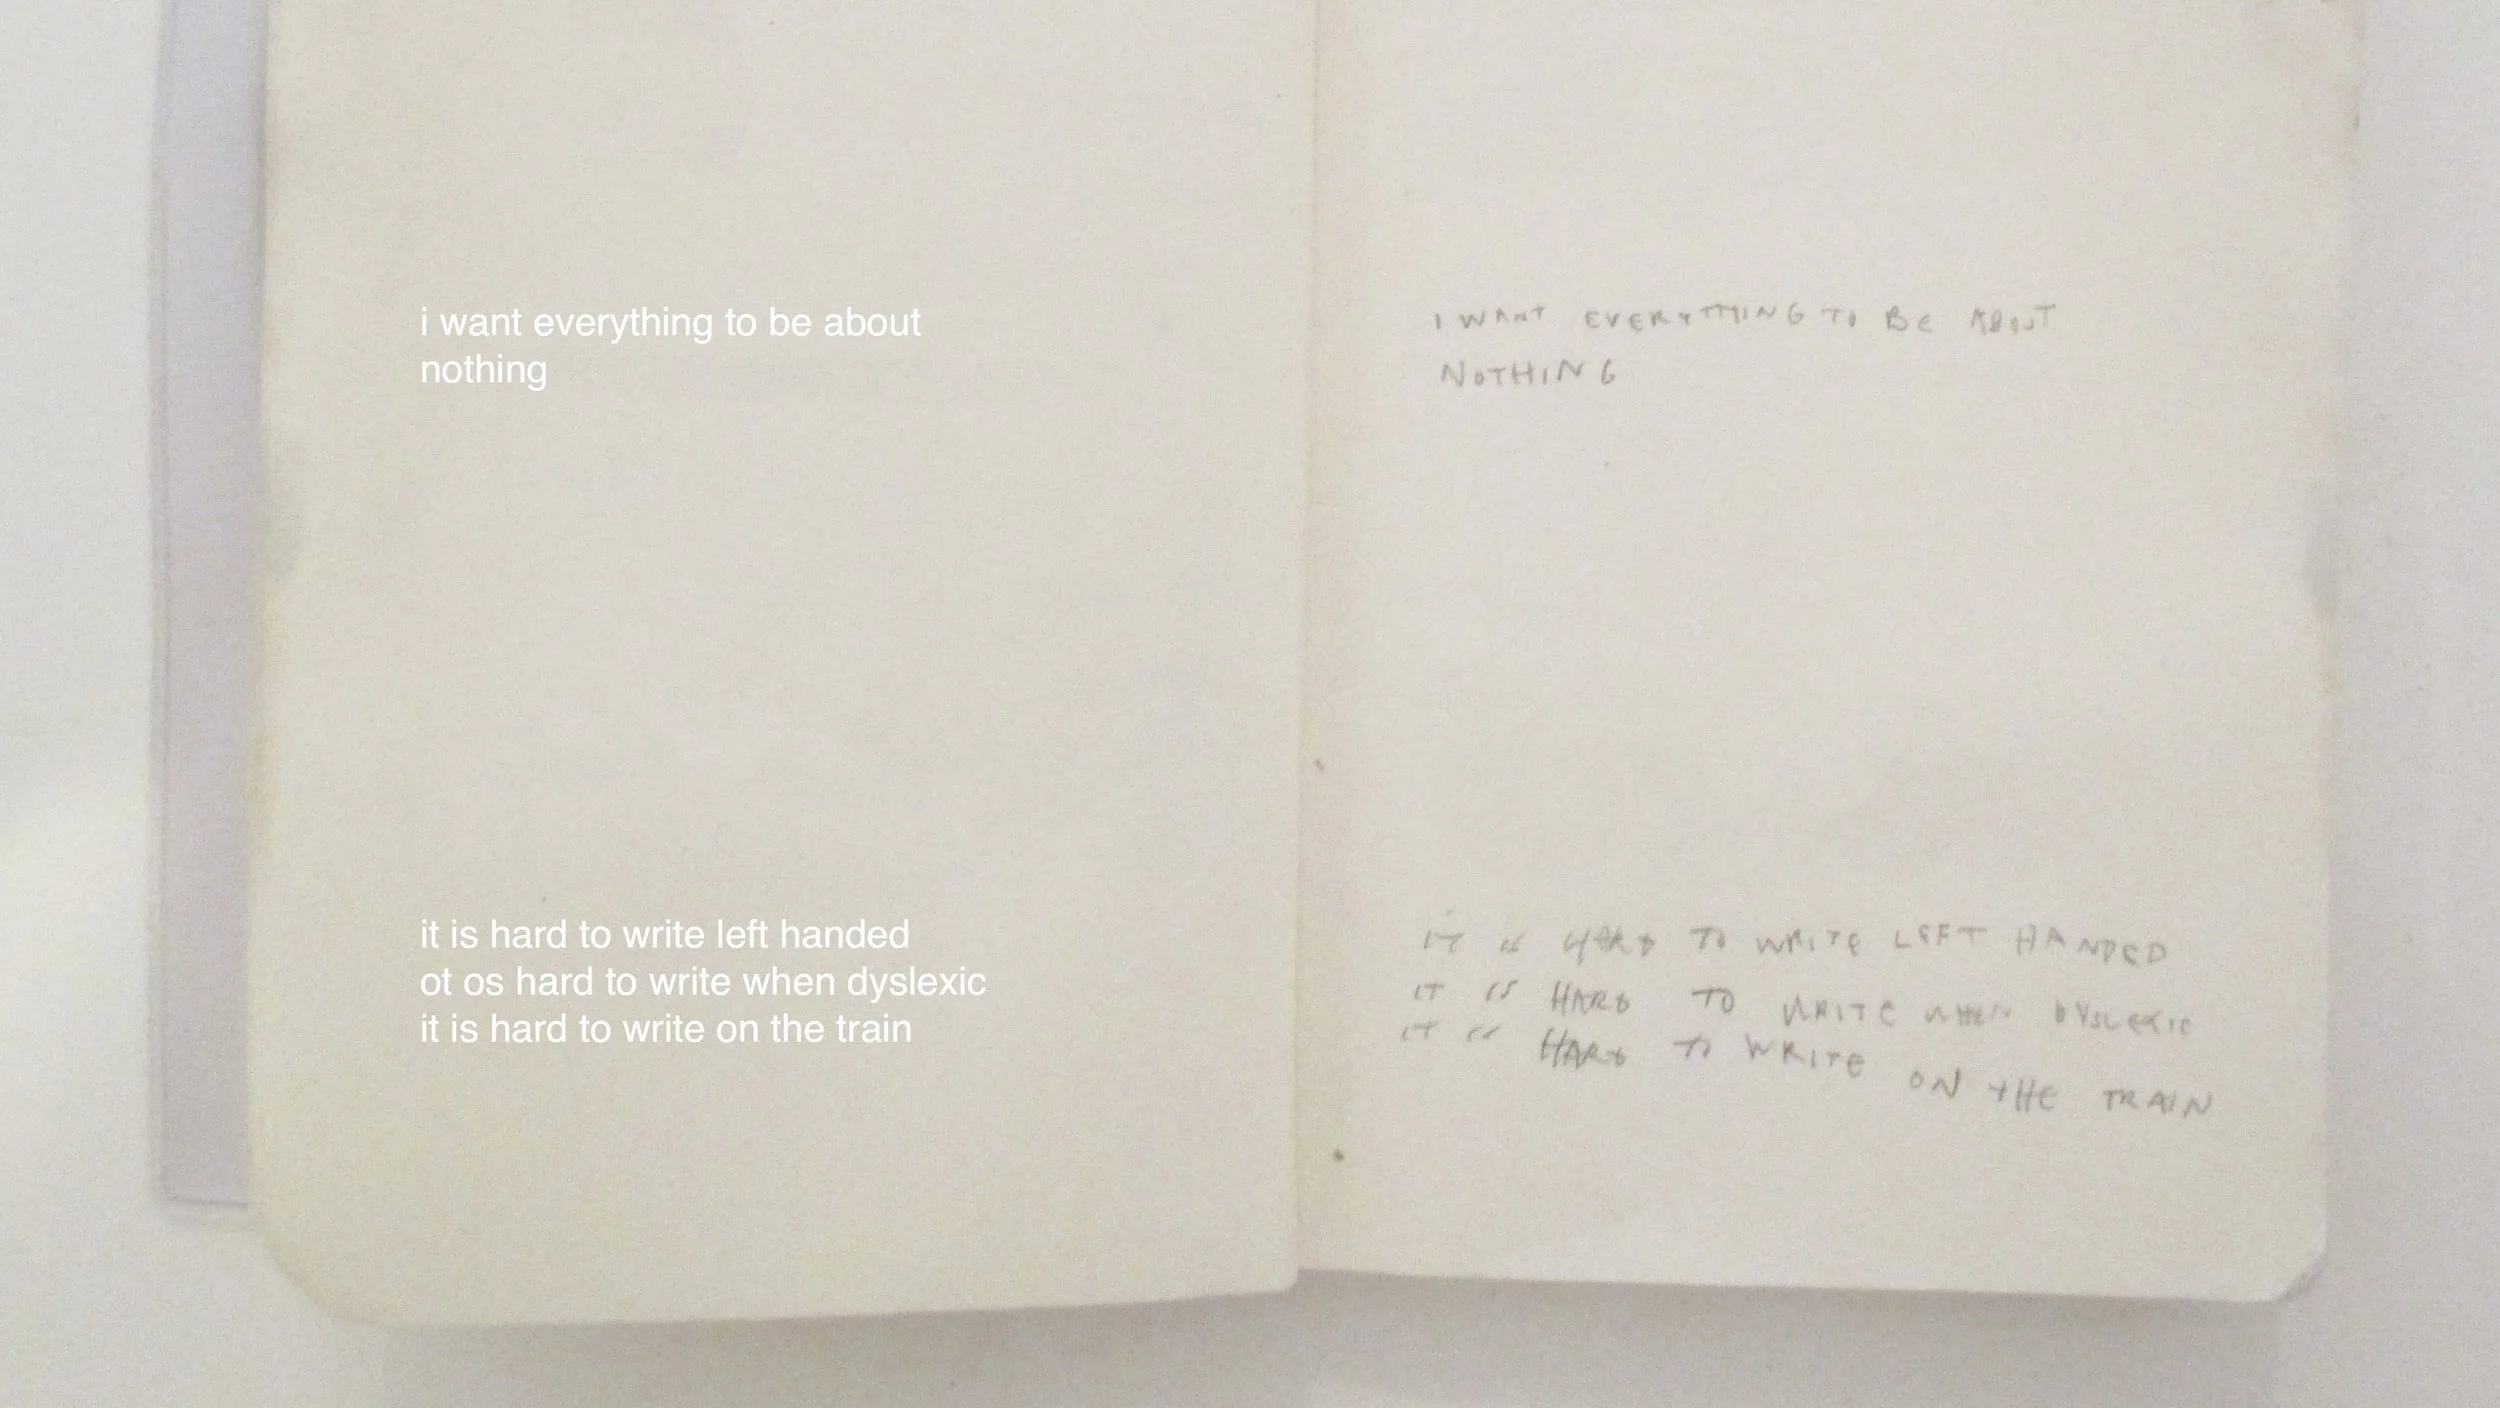 i want everything to be about
nothing
it is hard to write left handed
ot os hard to write when dyslexic
it is hard to write on the train
I WANT EVERYTHING TO BE ABOUT
NOTHING
IT IS HARD TO WRITE LEFT HANDED
IT IS HARD TO WRITE WHEN DYSLEXIC
IT IS HARD TO WRITE ON THE TRAIN